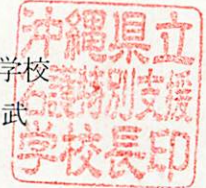 学校
武
沖縄県立
特別支援
学校長印